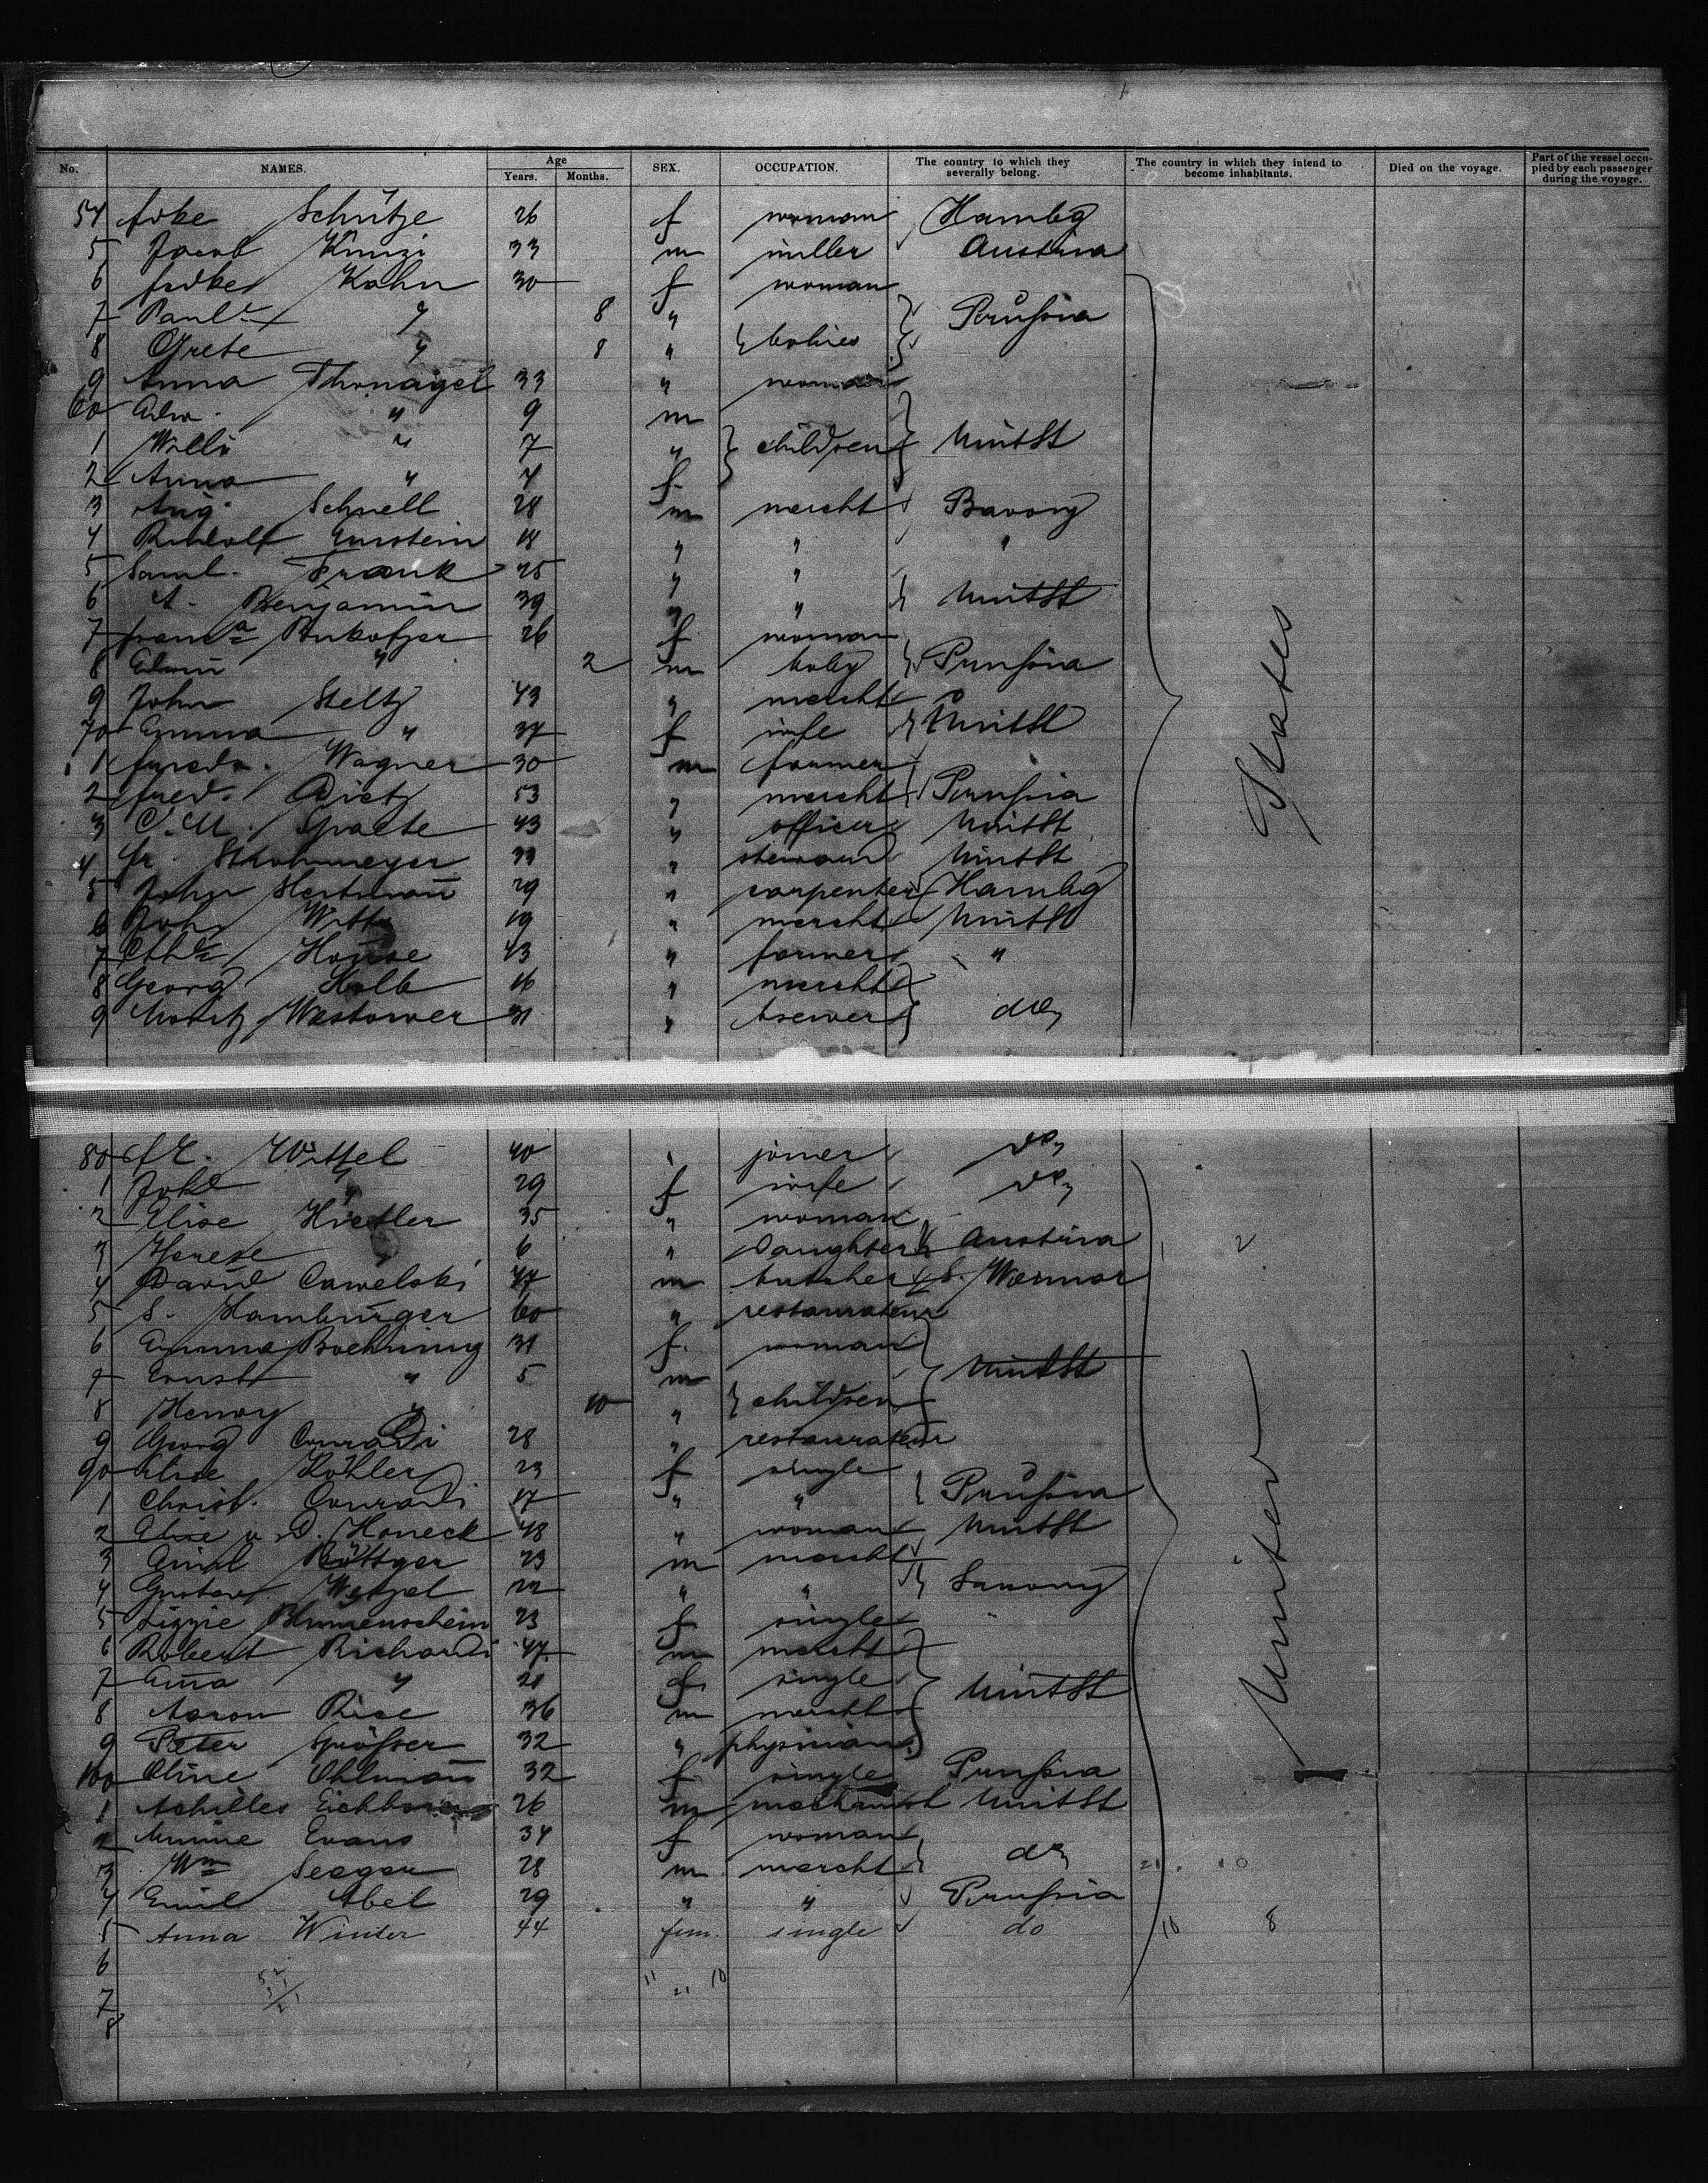 No. NAMES. Age Years. Months. SEX. OCCUPATION. The country to which they severally belong. The country in which they intend to become inhabitants. Died on the voyage. Part of the vessel occupied by each passenger during the voyage.
54 Schütze 26 f woman Hambg
5 Jacob Künzi 33 m miller Austria
6 Kahn 30 f woman
7 Paul " 8 " Prußia
8 Grete " 8 " babies
9 Anna Thonaigel 33 " woman
60 " 9 m
1 Willi " 7 " children UnitSt
2 Anna " 4 f
3 Aug. Schnell 28 m mercht Bavary
4 Rudolf 18 " " "
5 Saml. Frank 25 " "
6 A. Benjamin 39 " " UnitSt
7 26 f woman
8 Edwin " 2 m baby Prußia
9 John Steltz 43 " mercht
70 Emma " 37 f wife UnitSt
1 Wagner 30 m farmer
2 fred. Dietz 53 " mercht Prußia
3 C. M. Spaete 43 " officer UnitSt
4 fr. Strohmeyer 33 " steward UnitSt
5 John Hertman̄ 29 " carpenter Hambg
6 John Witte 19 " mercht UnitSt
7 House 43 " farmer "
8 Georg Kolb 16 " mercht
9 Moritz Westower 31 " brewer do
States
80 Wittel 40 " joiner do
1 " 29 f wife do
2 Elise Hietler 35 " woman
3 Therese " 6 " Daughter Austria 1 2
4 David Cawelski 47 m butcher S. Weimar
5 S. Hamburger 60 " restaurateur
6 Emma Boehning 31 f. woman
7 Ernst " 5 m UnitSt
8 Henry " 10 " children
9 Georg Conradi 28 " restaurateur
90 Elise Köhler 23 f single
1 Christ. Conradi 17 " " Prußia
2 Elise v. D. Honeck 48 " woman UnitSt
3 Emil Böttger 23 m mercht
4 Gustav Wetzel 22 " " Saxony
5 Lizzie Blumenschein 23 f single
6 Robert Richardi 47 m mercht
7 " 21 f. single UnitSt
8 Aaron Rice 36 m mercht
9 Peter 32 " physician
100 Oline Ohlman̄ 32 f single Prußia
1 Achilles Eichborn 26 m mechanist UnitSt
2 Minnie Evans 34 f woman
3 Wm Seeger 28 m mercht do 21. 10
4 Emil Abel 29 " " Prußia
5 Anna Winter 44 fem. single do 10 8
6
7
8
United
11 21 10